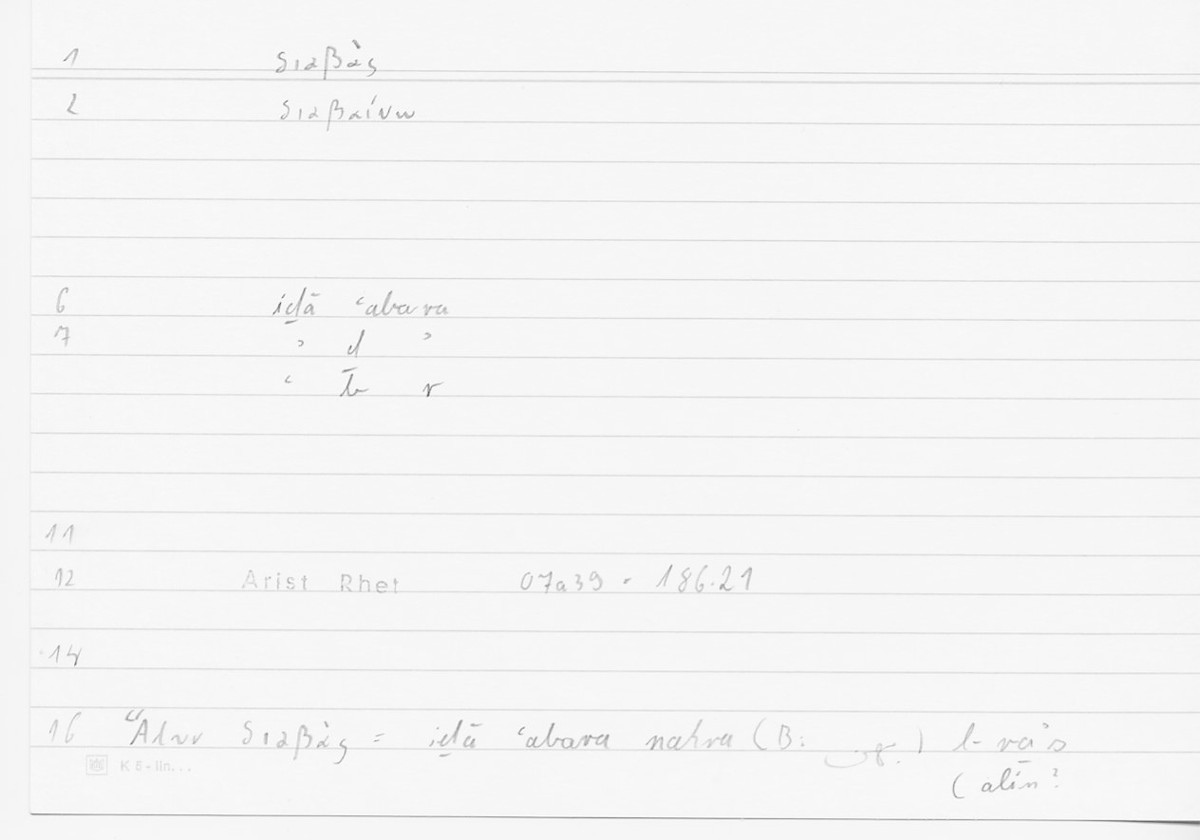 1 διαβὰς
2 διαβαίνω
6 iḏā ʿabara
7 ʾ ḏ ʾ
ʿ b r
11
12 Arist Rhet 07a39 · 186.21
14
16 Ἅλυν διαβὰς = iḏā ʿabara nahra (B: ) l-raʾs
K5-lin...
(alīn?